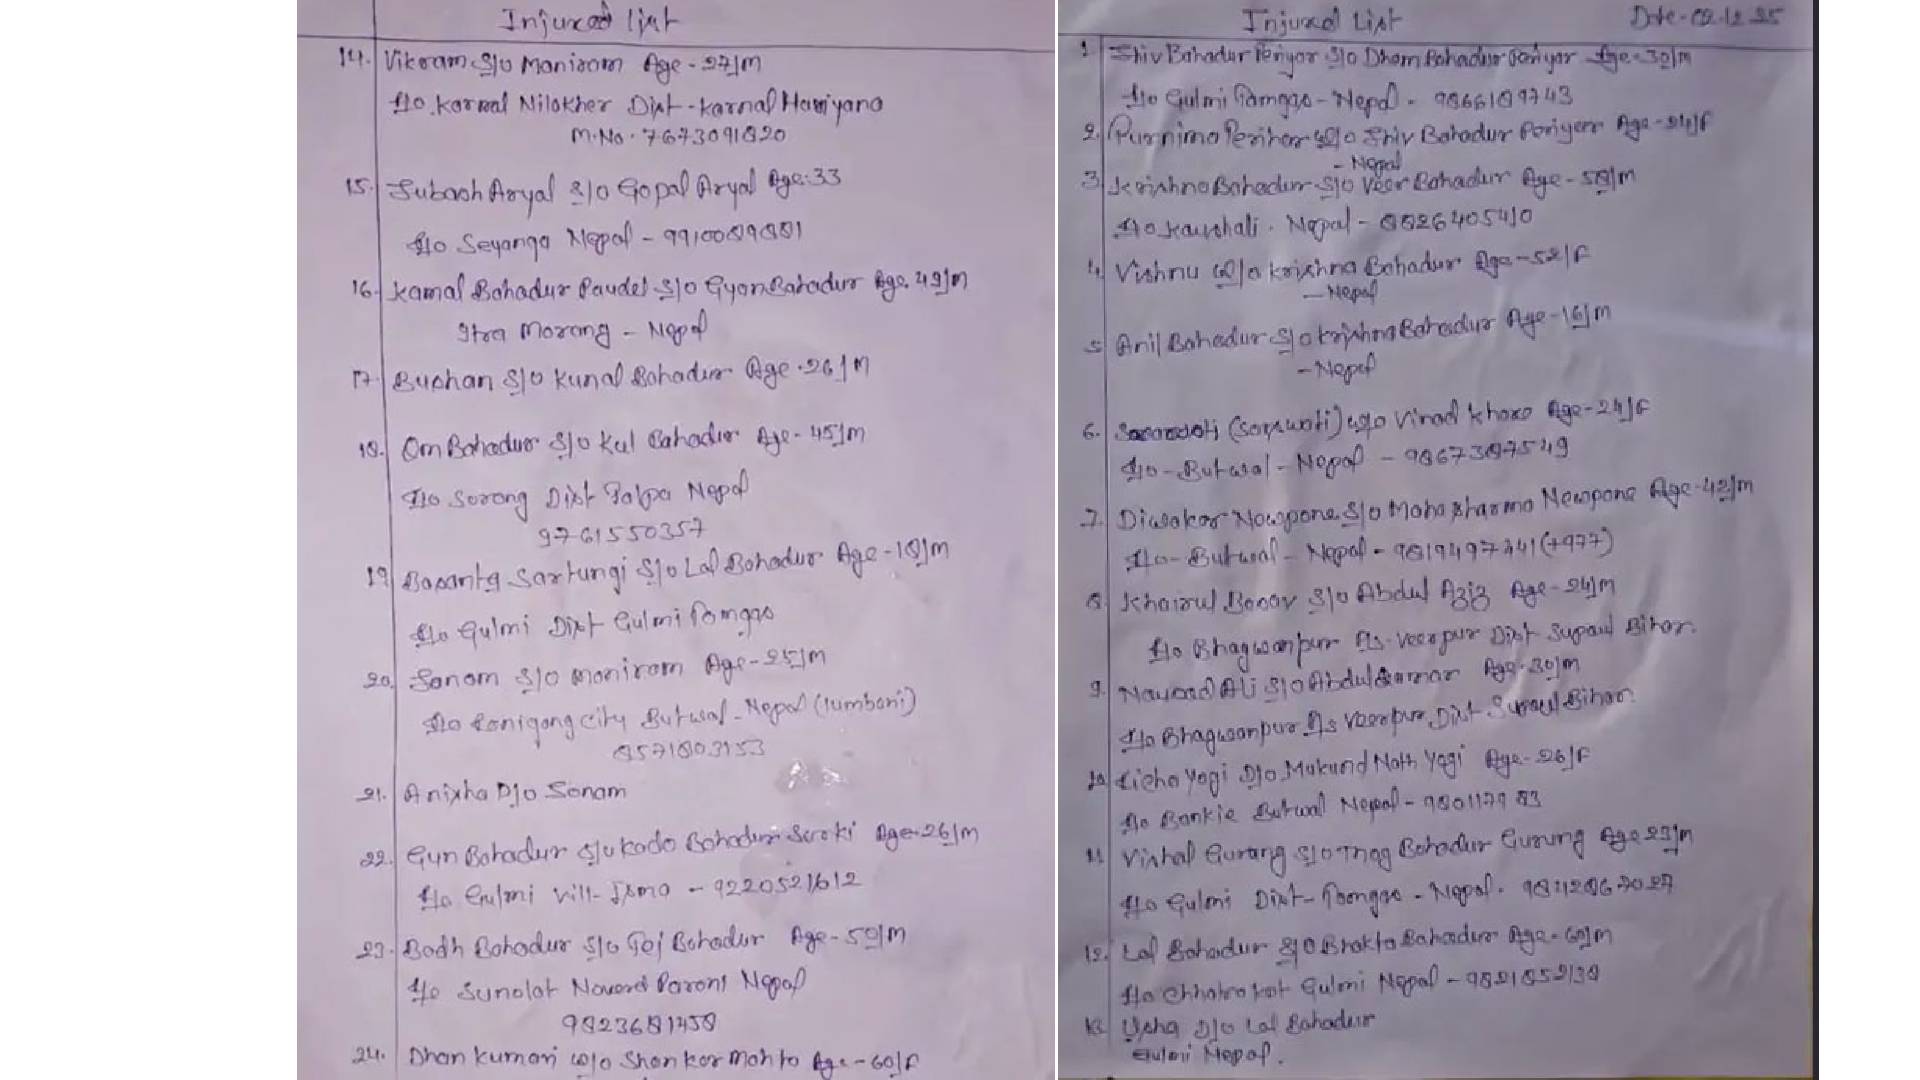 Injured List
14. Vikram S/o Maniram Age-27/M
R/o. Karnal Nilokher Dist-Karnal Hariyana
M.No. 7673091820
15. Subash Aryal S/o Gopal Aryal Age:33
R/o Seyanga Nepal - 9910089881
16. Kamal Bahadur Paudel S/o Gyan Bahadur Age.49/M
Itra Morang - Nepal
17. Bushan S/o Kunal Bahadur Age.26/M
18. Om Bahadur S/o Kul Bahadur Age-45/M
R/o Sorong Dist Palpa Nepal
9761550357
19. Basanta Sartungi S/o Lal Bahadur Age-18/M
R/o Gulmi Dist Gulmi Tamgas
20. Sonam S/o Maniram Age-25/M
R/o City Butwal-Nepal (lumbani)
8571803153
21. Anisha D/o Sonam
22. Gun Bahadur S/o Kado Bahadur Sarki Age-26/M
R/o Gulmi Vill-Isma - 9220521612
23. Bodh Bahadur S/o Tej Bahadur Age-50/M
R/o Sunolat Nepal
9823681458
24. Dhan Kumari w/o Shankar Mahto Age-60/F
Injured List Date-02.12.25
1. Shiv Bahadur Periyar S/o Dham Bahadur Periyar Age-30/M
R/o Gulmi Tamgas-Nepal - 9866189743
2. Purnima Perihar w/o Shiv Bahadur Periyar Age-24/F
- Nepal
3. Krishna Bahadur S/o Veer Bahadur Age-58/M
R/o Kaushali. Nepal - 8826405410
4. Vishnu w/o Krishna Bahadur Age-52/F
- Nepal
5. Anil Bahadur S/o Krishna Bahadur Age-16/M
- Nepal
6. (Sarswati) w/o Vinod Age-24/F
R/o-Butwal-Nepal - 9867387549
7. Diwakar Newpane S/o Newpane Age-42/M
R/o-Butwal-Nepal - 9819497341 (+977)
8. Khairul S/o Abdul Aziz Age-24/M
R/o Bhagwanpur Ps-Veerpur Dist Supaul Bihar.
9. Nausad Ali S/o Abdul Age-30/M
R/o Bhagwanpur Ps Veerpur Dist Supaul Bihar.
10. Yogi D/o Mukund Nath Yogi Age-26/F
R/o Bankie Butwal Nepal -
11. Vishal Gurang S/o Bahadur Gurung Age 23/M
R/o Gulmi Dist-Tamgas-Nepal.
12. Lal Bahadur S/o Bhakta Bahadur Age-60/M
R/o Chhatrakot Gulmi Nepal - 9821852138
13. Usha D/o Lal Bahadur
Gulmi Nepal.